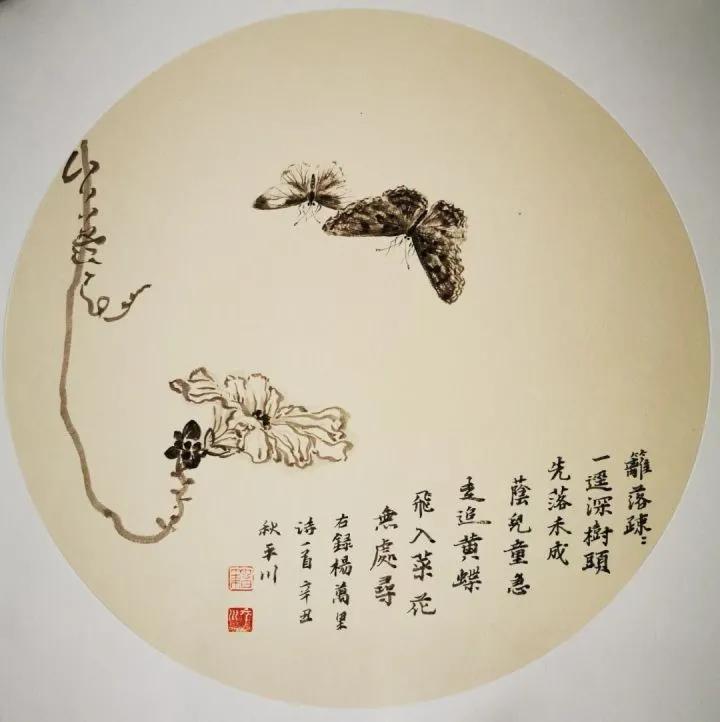 籬落疎〻
一逕深樹頭
先落未成
蔭兒童急
走追黄蝶
飛入菜花
無處尋
右録楊萬里
诗一首辛丑
秋平川